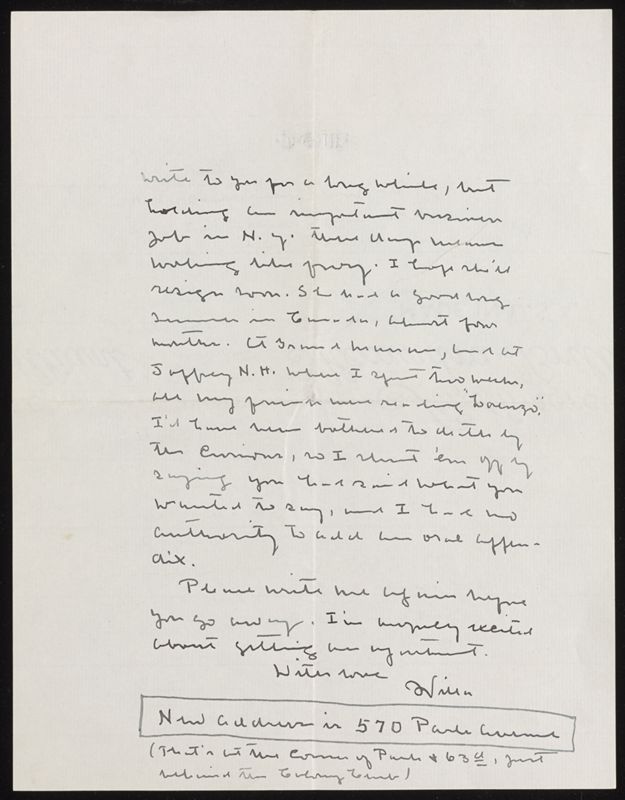 write to you for a long while, but
holding an important business
job in N.Y. these days means
working like fury. I hope she'll
resign soon. She had a good long
summer in Canada, almost four
months. At Grand Manan, and at
Jaffrey N.H. where I spent two weeks,
all my friends were reading "Lorenzo".
I'd have been bothered to death by
the curious, so I shut 'em off by
saying you had said what you
wanted to say, and I had no
authority to add an oral appen-
dix.
Please write me again before
you go away. I'm awfully excited
about getting an apartment.
With love
Willa
New address is 570 Park Avenue
(That's at the corner of Park & 63d, just
behind the Colony Club)